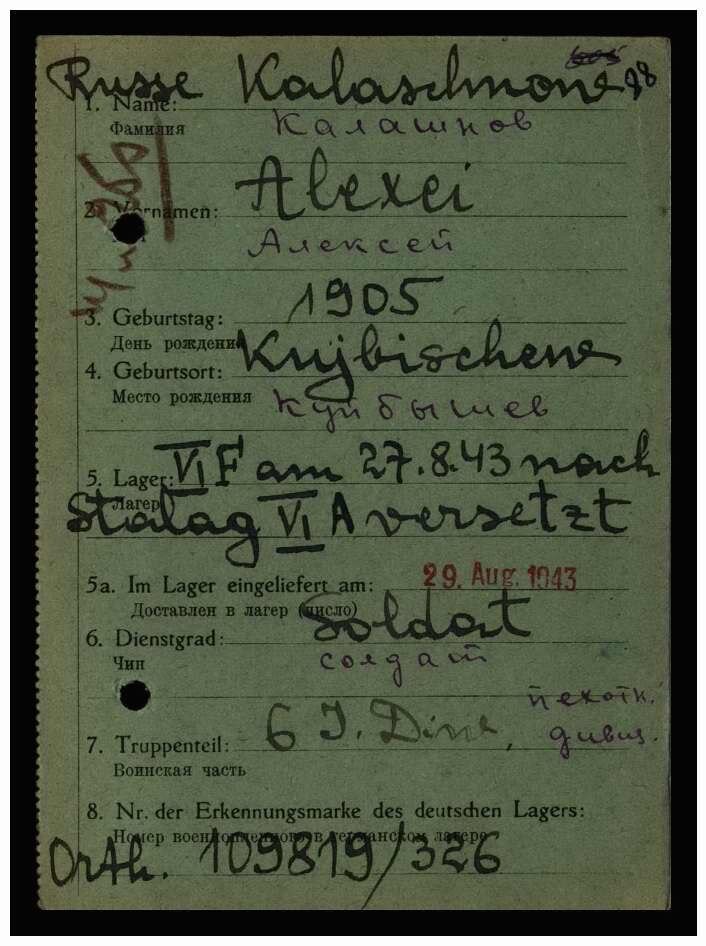 Russe Kalaschnow 98
1. Name:
Фамилия Калашнов
2. Vornamen: Alexei
Алексей
3. Geburtstag: 1905
День рождения
4. Geburtsort: Kujbischew
Место рождения Куйбышев
5. Lager: VI F am 27.8.43 nach
Лагерь
Stalag VI A versetzt
5a. Im Lager eingeliefert am: 29. Aug. 1943
Доставлен в лагерь (число)
6. Dienstgrad: Soldat
Чин солдат
пехотн.
7. Truppenteil: 6 I. Div. дивиз.
Воинская часть
8. Nr. der Erkennungsmarke des deutschen Lagers:
Номер военнопленного в германском лагере
Orth. 109819/326